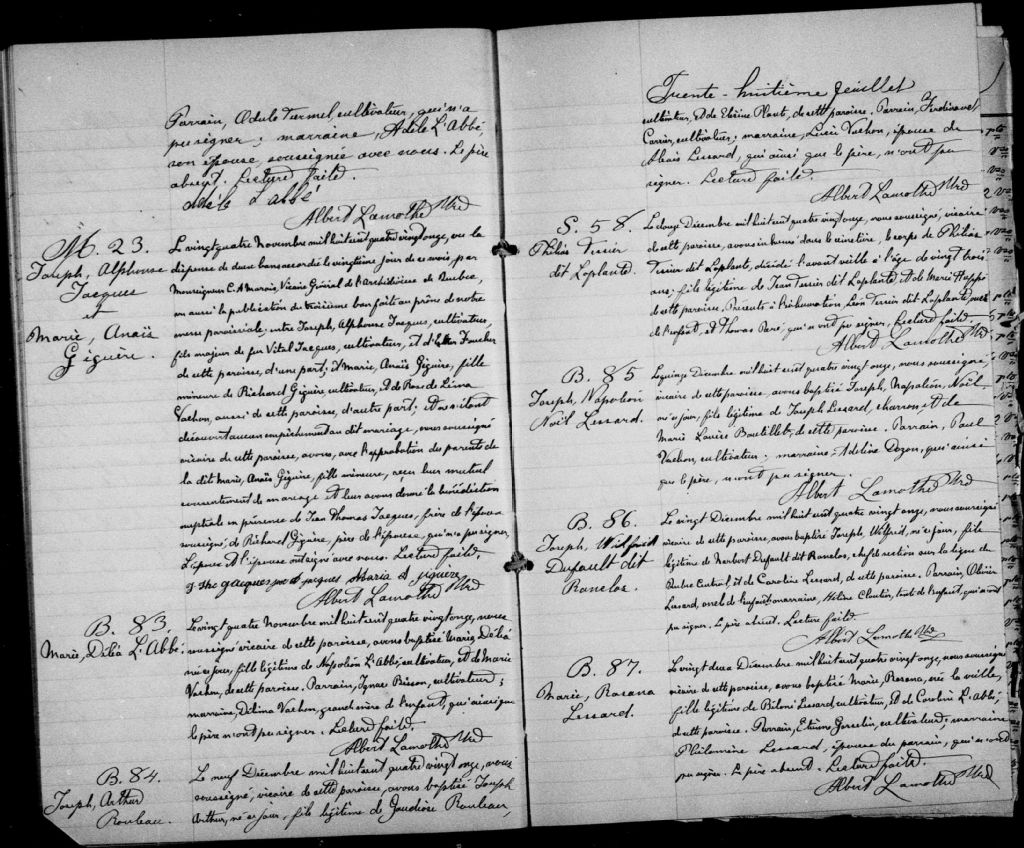 Parrain, Odule Turmel, cultivateur, qui n'a
pu signer; marraine, Adèle L'Abbé,
son épouse, soussignée avec nous. Le père
absent. Lecture faite.
Adèle L'abbé
Albert Lamothe Ptre
M. 23.
Joseph, Alphonse
Jacques
et
Marie, Anaïs
Giguère.
Le vingt quatre Novembre mil huit cent quatre vingt onze, vu la
dispense de deux bans accordée le vingtième jour de ce mois, par
Monseigneur C. A. Marois, Vicaire Général de l'Archidiocèse de Québec,
vu aussi la publication du troisième ban faite au prône de notre
messe paroissiale, entre Joseph, Alphonse Jacques, cultivateur,
fils majeur de feu Vital Jacques, cultivateur, et d'Ellen Faucher
de cette paroisse, d'une part; et Marie, Anaïs Giguère, fille
mineure de Richard Giguère, cultivateur, et de Rose de Lima
Vachon, aussi de cette paroisse, d'autre part; et ne s'étant
découvert aucun empêchement au dit mariage, nous soussigné
vicaire de cette paroisse, avons, avec l'approbation des parents de
la dite Marie, Anaïs Giguère, fille mineure, reçu leur mutuel
consentement de mariage et leur avons donné la bénédiction
nuptiale en présence de Jean Thomas Jacques, frère de l'époux
soussigné, de Richard Giguère, père de l'épouse, qui n'a pu signer,
L'époux et l'épouse ont signé avec nous. Lecture faite.
jacques Maria A giguère
Albert Lamothe Ptre
B. 83.
Marie, Délia L'Abbé.
Le vingt quatre Novembre mil huit cent quatre vingt onze, nous
soussigné vicaire de cette paroisse, avons baptisé Marie Délia
née ce jour, fille légitime de Napoléon L'Abbé, cultivateur, et de Marie
Vachon, de cette paroisse. Parrain, Ignace Bisson, cultivateur;
marraine, Délina Vachon, grand'mère de l'enfant, qui ainsi que
le père n'ont pu signer. Lecture faite.
Albert Lamothe Ptre
B. 84.
Joseph, Arthur
Rouleau.
Le neuf Décembre mil huit cent quatre vingt onze, nous
soussigné, vicaire de cette paroisse, avons baptisé Joseph
Arthur, né ce jour, fils légitime de Gaudiose Rouleau,
Trente-huitième feuillet
cultivateur, et de Elzire Plante, de cette paroisse. Parrain, Ferdinand
Carrier, cultivateur; marraine, Lucie Vachon, épouse de
Alexis Lessard, qui ainsi que le père, n'ont pu
signer. Lecture faite.
Albert Lamothe Ptre
S. 58.
Philias Tissier
dit Laplante.
Le douze Décembre mil huit cent quatre vingt onze, nous soussigné, vicaire
de cette paroisse, avons inhumé dans le cimetière, le corps de Philias
Tissier dit Laplante, décédé l'avant veille à l'âge de vingt trois
ans; fils légitime de Jean Tissier dit Laplante, et de Marie
de cette paroisse. Présents à l'inhumation, Léon Tissier dit Laplante,
de l'enfant, et Thomas Paré, qui n'ont pu signer. Lecture faite.
Albert Lamothe Ptre
B. 85
Joseph, Napoléon
Noël Lessard.
Le quinze Décembre mil huit cent quatre vingt onze, nous soussigné,
vicaire de cette paroisse, avons baptisé Joseph, Napoléon, Noël
né ce jour, fils légitime de Joseph Lessard, charron, et de
Marie Louise Boutillet, de cette paroisse. Parrain, Paul
Vachon, cultivateur; marraine, Adeline Dozon, qui ainsi
que le père, n'ont pu signer.
Albert Lamothe Ptre
B. 86.
Joseph, Wilfrid
Dufault dit
Ranelos.
Le vingt Décembre mil huit cent quatre vingt onze, nous soussigné
vicaire de cette paroisse, avons baptisé Joseph, Wilfrid, né ce jour, fils
légitime de Norbert Dufault dit Ranelos, chef de section sur la ligne du
Québec Central, et de Caroline Lessard, de cette paroisse. Parrain, Olivier
Lessard, oncle de l'enfant, marraine, Hélène Cloutier, tante de l'enfant, qui n'ont
pu signer. Le père absent. Lecture faite.
Albert Lamothe Ptre
B. 87.
Marie, Rosana
Lessard.
Le vingt deux Décembre mil huit cent quatre vingt onze, nous soussigné
vicaire de cette paroisse, avons baptisé Marie, Rosana, née la veille,
fille légitime de Béloni Lessard, cultivateur, et de Caroline L'Abbé,
de cette paroisse. Parrain, Etienne Josselin, cultivateur; marraine
Philomène Lessard, épouse du parrain, qui n'ont
pu signer. Le père absent. Lecture faite.
Albert Lamothe Ptre